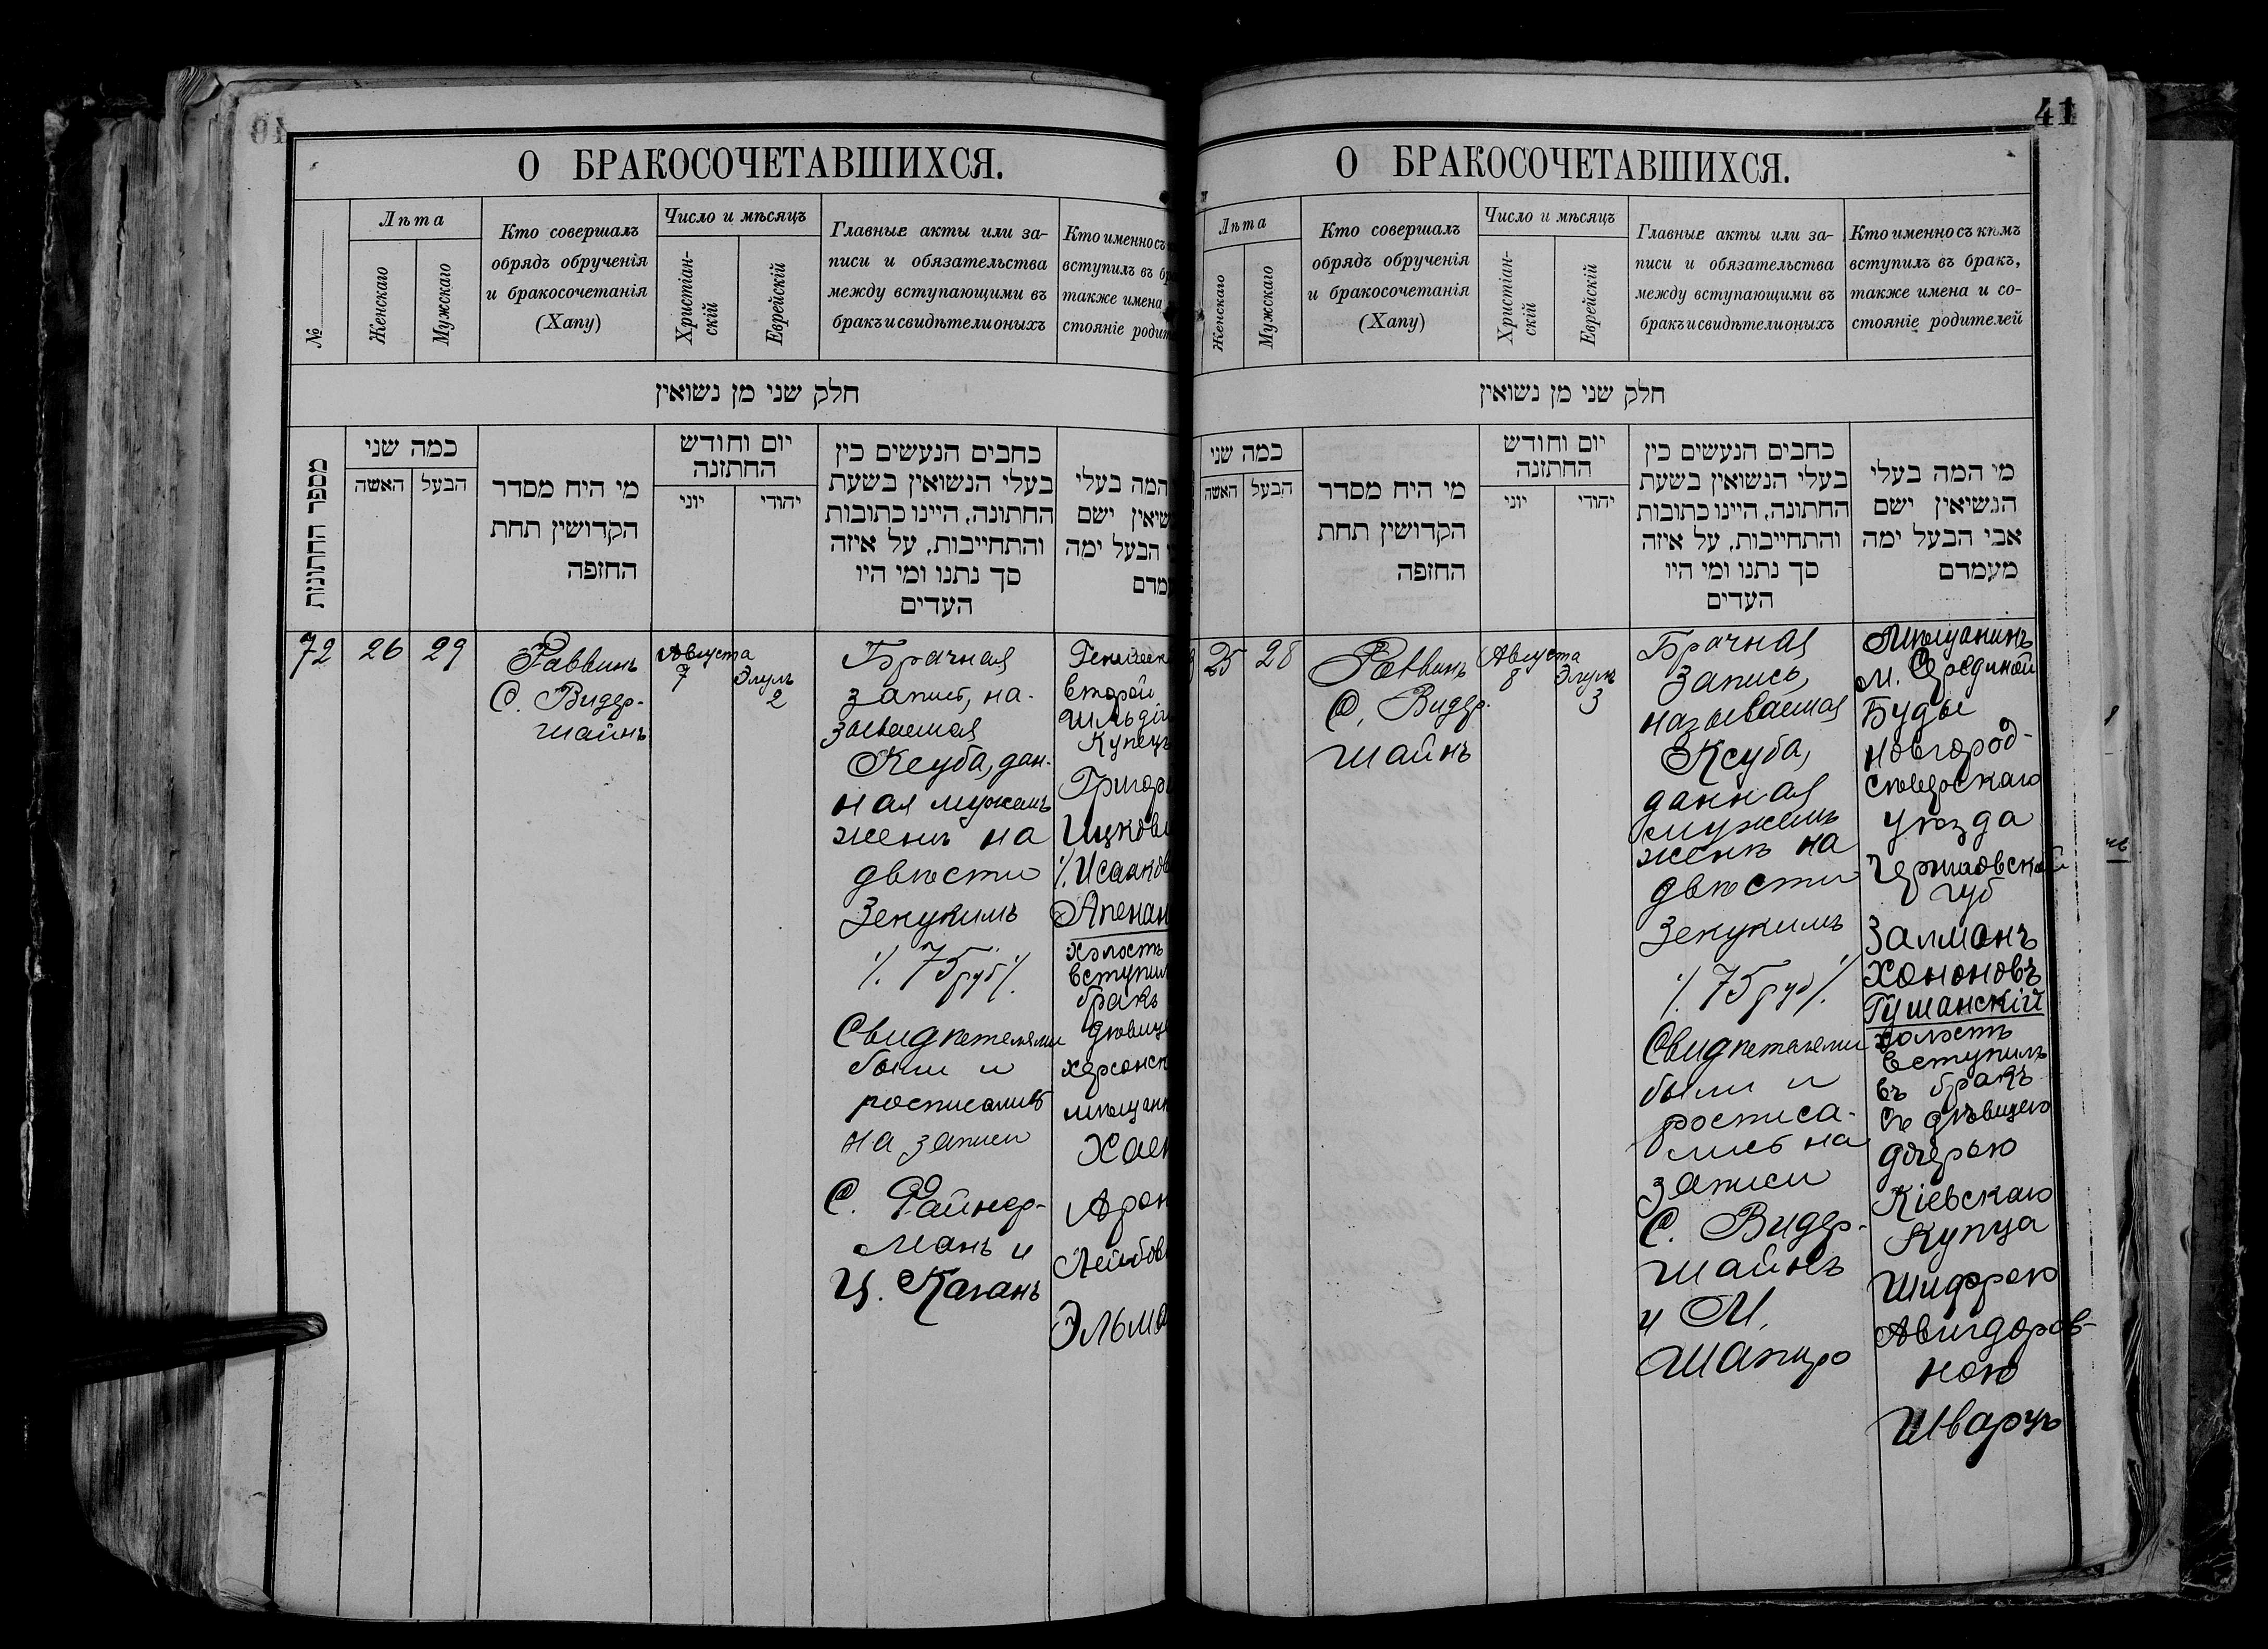 О БРАКОСОЧЕТАВШИХСЯ.
№
Лѣта
Женскаго
Мужскаго
Кто совершалъ
обрядъ обрученія
и бракосочетанія
(Хапу)
Число и мѣсяцъ
Христіан-
скій
Еврейскій
Главные акты или за-
писи и обязательства
между вступающими въ
бракъ и свидѣтели оныхъ
Кто именно съ
вступилъ въ бр
также имена
стояніе родит
חלק שני מן נשואין
מספר החתונות
כמה שני
האשה
הבעל
מי היח מסדר
הקדושין תחת
החופה
יום וחודש
החתונה
יוני
יהודי
כחבים הנעשים כין
בעלי הנשואין בשעת
החתונה, היינו כתובות
והתחייבות, על איזה
סך נתנו ומי היו
העדים
המה בעלי
שיאין ישם
הבעל ימה
מדם
72
26
29
Раввинъ
С. Видер-
шайнъ
Августа
7
Элулъ
2
Брачная
запись, на-
зываемая
Ксуба, дан-
ная мужемъ
женѣ на
двѣсти
Зекукимъ
./. 75 руб ./.
Свидѣтелями
были и
росписались
на записи
С. Файнер-
манъ и
Ц. Каганъ
второй
Гильдіи
Купецъ
Григор
Ицков
./. Исааков
Апенан
холостъ
вступил
бракъ
дѣвице
херсонск
мѣщанк
Хаен
Арон
Лейбов
Эльма
41
О БРАКОСОЧЕТАВШИХСЯ.
Лѣта
Женскаго
Мужскаго
Кто совершалъ
обрядъ обрученія
и бракосочетанія
(Хапу)
Число и мѣсяцъ
Христіан-
скій
Еврейскій
Главные акты или за-
писи и обязательства
между вступающими въ
бракъ и свидѣтели оныхъ
Кто именно съ кѣмъ
вступилъ въ бракъ,
также имена и со-
стояніе родителей
חלק שני מן נשואין
כמה שני
האשה
הבעל
מי היח מסדר
הקדושין תחת
החופה
יום וחודש
החתונה
יוני
יהודי
כחבים הנעשים כין
בעלי הנשואין בשעת
החתונה, היינו כתובות
והתחייבות, על איזה
סך נתנו ומי היו
העדים
מי המה בעלי
הנשיאין ישם
אבי הבעל ימה
מעמדם
25
28
Раввинъ
С. Видер-
шайнъ
Августа
8
Элулъ
3
Брачная
запись,
называемая
Ксуба,
данная
мужемъ
женѣ на
двѣсти
Зекукимъ
./. 75 руб ./.
Свидѣтелями
были и
росписа-
лись на
записи
С. Видер-
шайнъ
и М.
Шапиро
Мѣщанинъ
м. Серединой
Буды
Новгород-
Сѣверскаго
уѣзда
Черниговской
губ
Залманъ
Хононовъ
Гушанскій
холостъ
вступилъ
въ бракъ
съ дѣвицею
дочерью
Кіевскаго
Купца
Шифрою
Авигдоров-
ною
Шварцъ